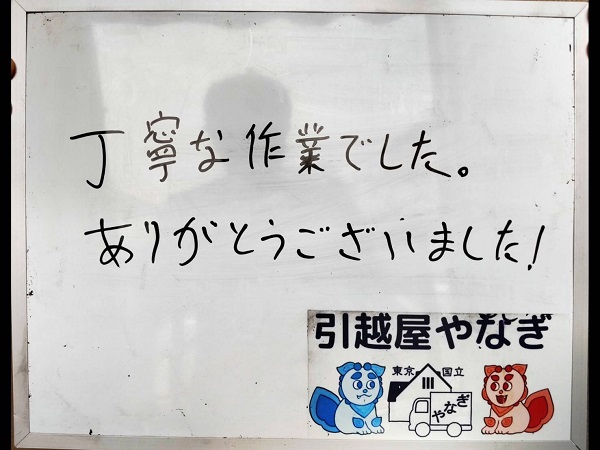 丁寧な作業でした。
ありがとうございました!
引越屋やなぎ
東京 国立
やなぎ